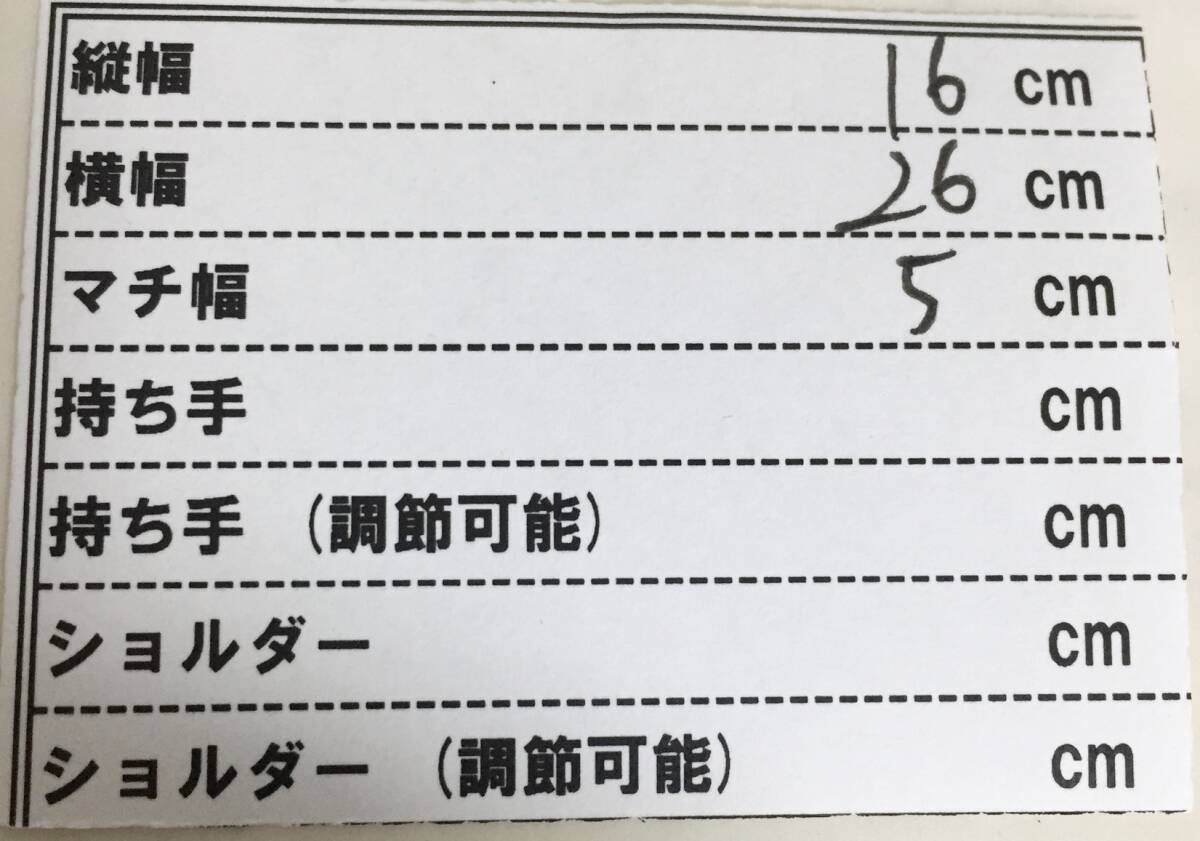 縦幅 16 cm
横幅 26 cm
マチ幅 5 cm
持ち手 cm
持ち手 (調節可能) cm
ショルダー cm
ショルダー (調節可能) cm